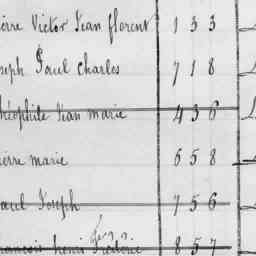 ierre Victor Jean florent 1 3 3
seph Paul Charles 7 1 8
héophile Jean marie 4 3 6
ierre marie 6 5 8
aul Joseph 7 5 6
rancois henri Frédéric 8 5 7